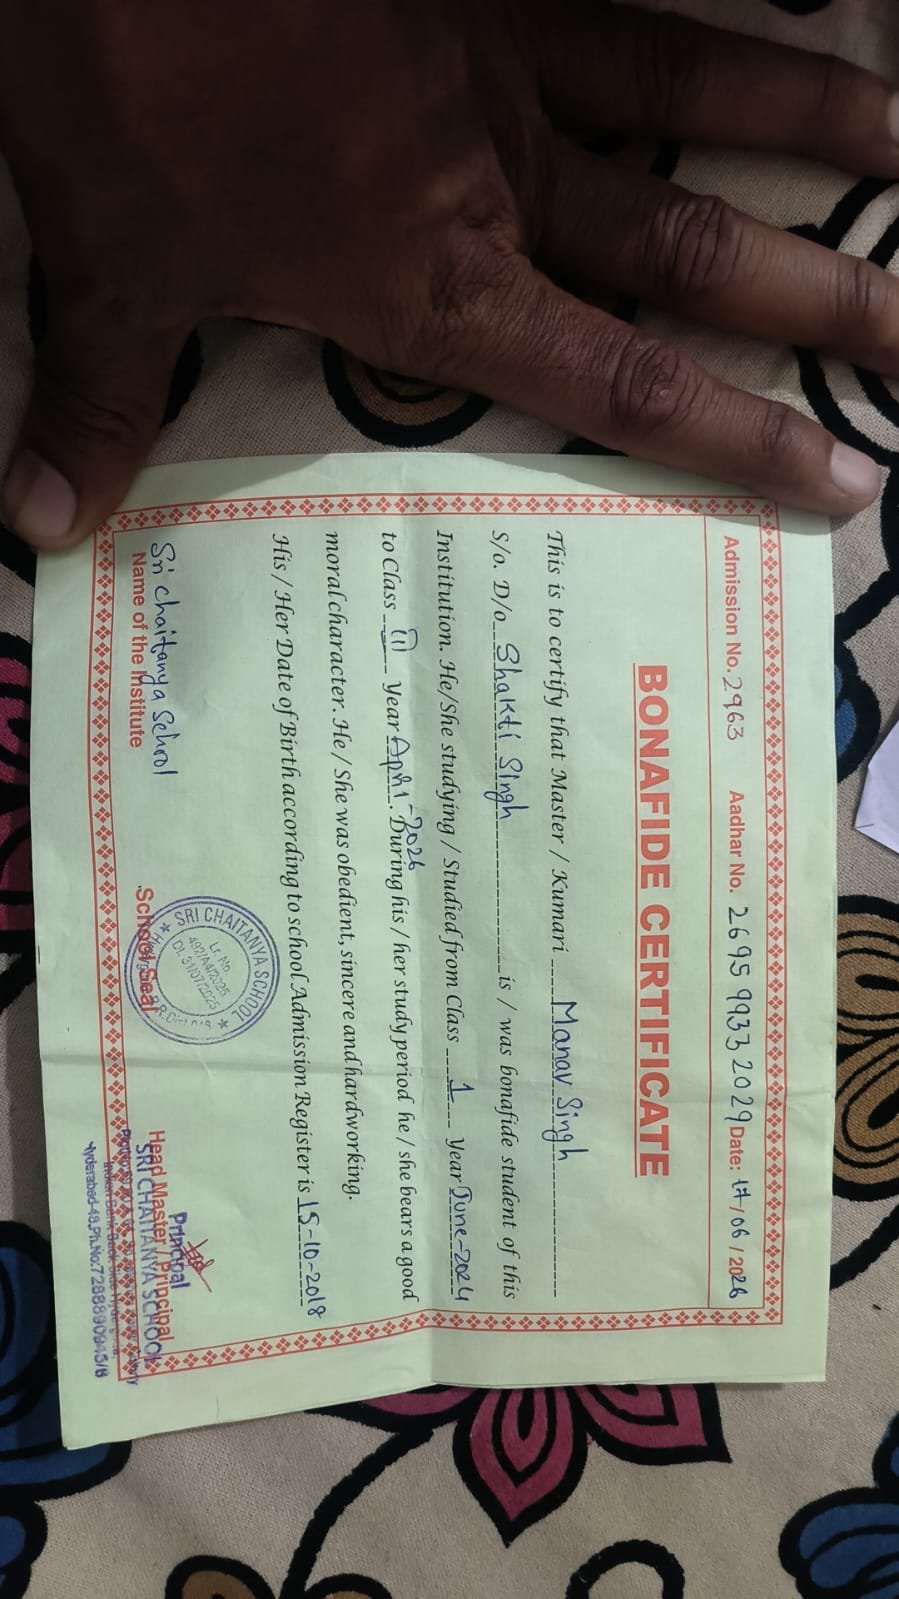 Admission No. 2963 Aadhar No. 2695 9933 2029 Date: 17/06/2026
BONAFIDE CERTIFICATE
This is to certify that Master / Kumari Manav Singh
S/o. D/o Shakti Singh is / was bonafide student of this
Institution. He/She studying / Studied from Class 1 Year June-2024
to Class II Year April-2026. During his / her study period he / she bears a good
moral character. He / She was obedient, sincere and hardworking.
His / Her Date of Birth according to school Admission Register is 15-10-2018
Sri Chaitanya School
Name of the Institute
School Seal
SRI CHAITANYA SCHOOL
Lr. No.
492/A4/2025
Dt. 31/07/2025
Principal
Head Master / Principal
SRI CHAITANYA SCHOOL
Hyderabad-48. Ph.No: